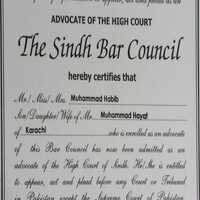 ADVOCATE OF THE HIGH COURT
The Sindh Bar Council
hereby certifies that
Mr./ Miss/ Mrs. Muhammad Habib
Son/Daughter/Wife of Mr. Muhammad Hayat
of Karachi who is enrolled as an advocate
of this Bar Council has now been admitted as an
advocate of the High Court of Sindh. He/She is entitled
to appear, act and plead before any Court or Tribunal
in Pakistan except the Supreme Court of Pakistan